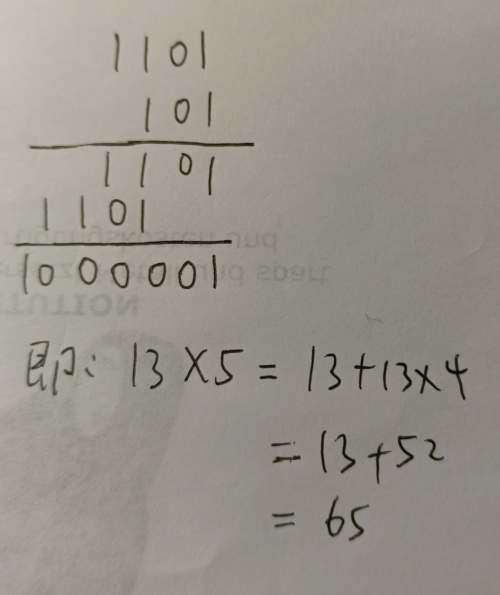 1101
101
1101
1101
1000001
即: 13×5 = 13+13×4
= 13+52
= 65